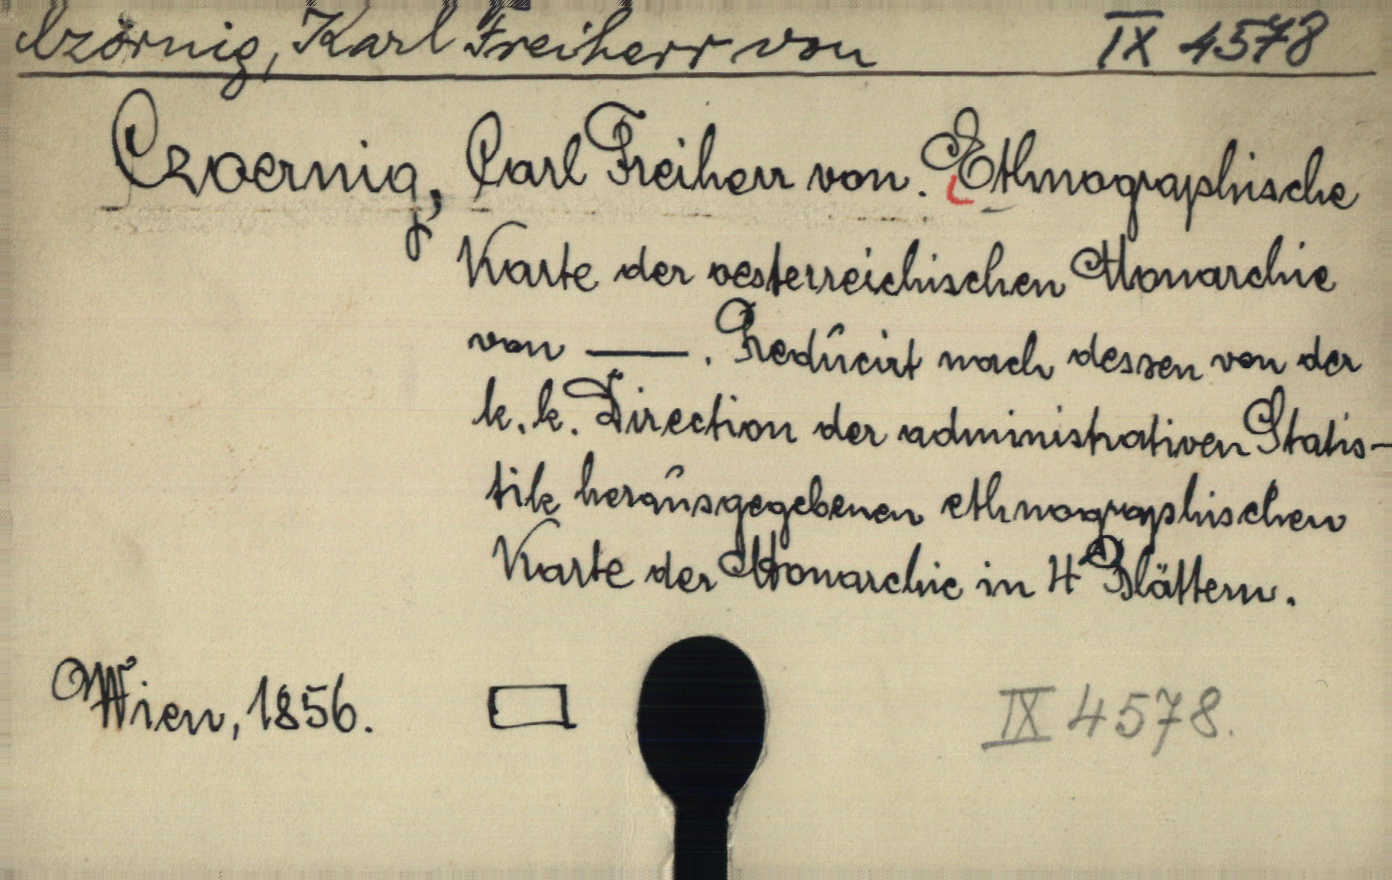 Czörnig, Karl Freiherr von IX 4578
Czoernig, Carl Freiherr von. Ethnographische
Karte der oesterreichischen Monarchie
von —. Reducirt nach dessen von der
k. k. Direction der administrativen Statis-
tik herausgegebenen ethnographischen
Karte der Monarchie in 4 Blättern.
Wien, 1856. IX 4578.